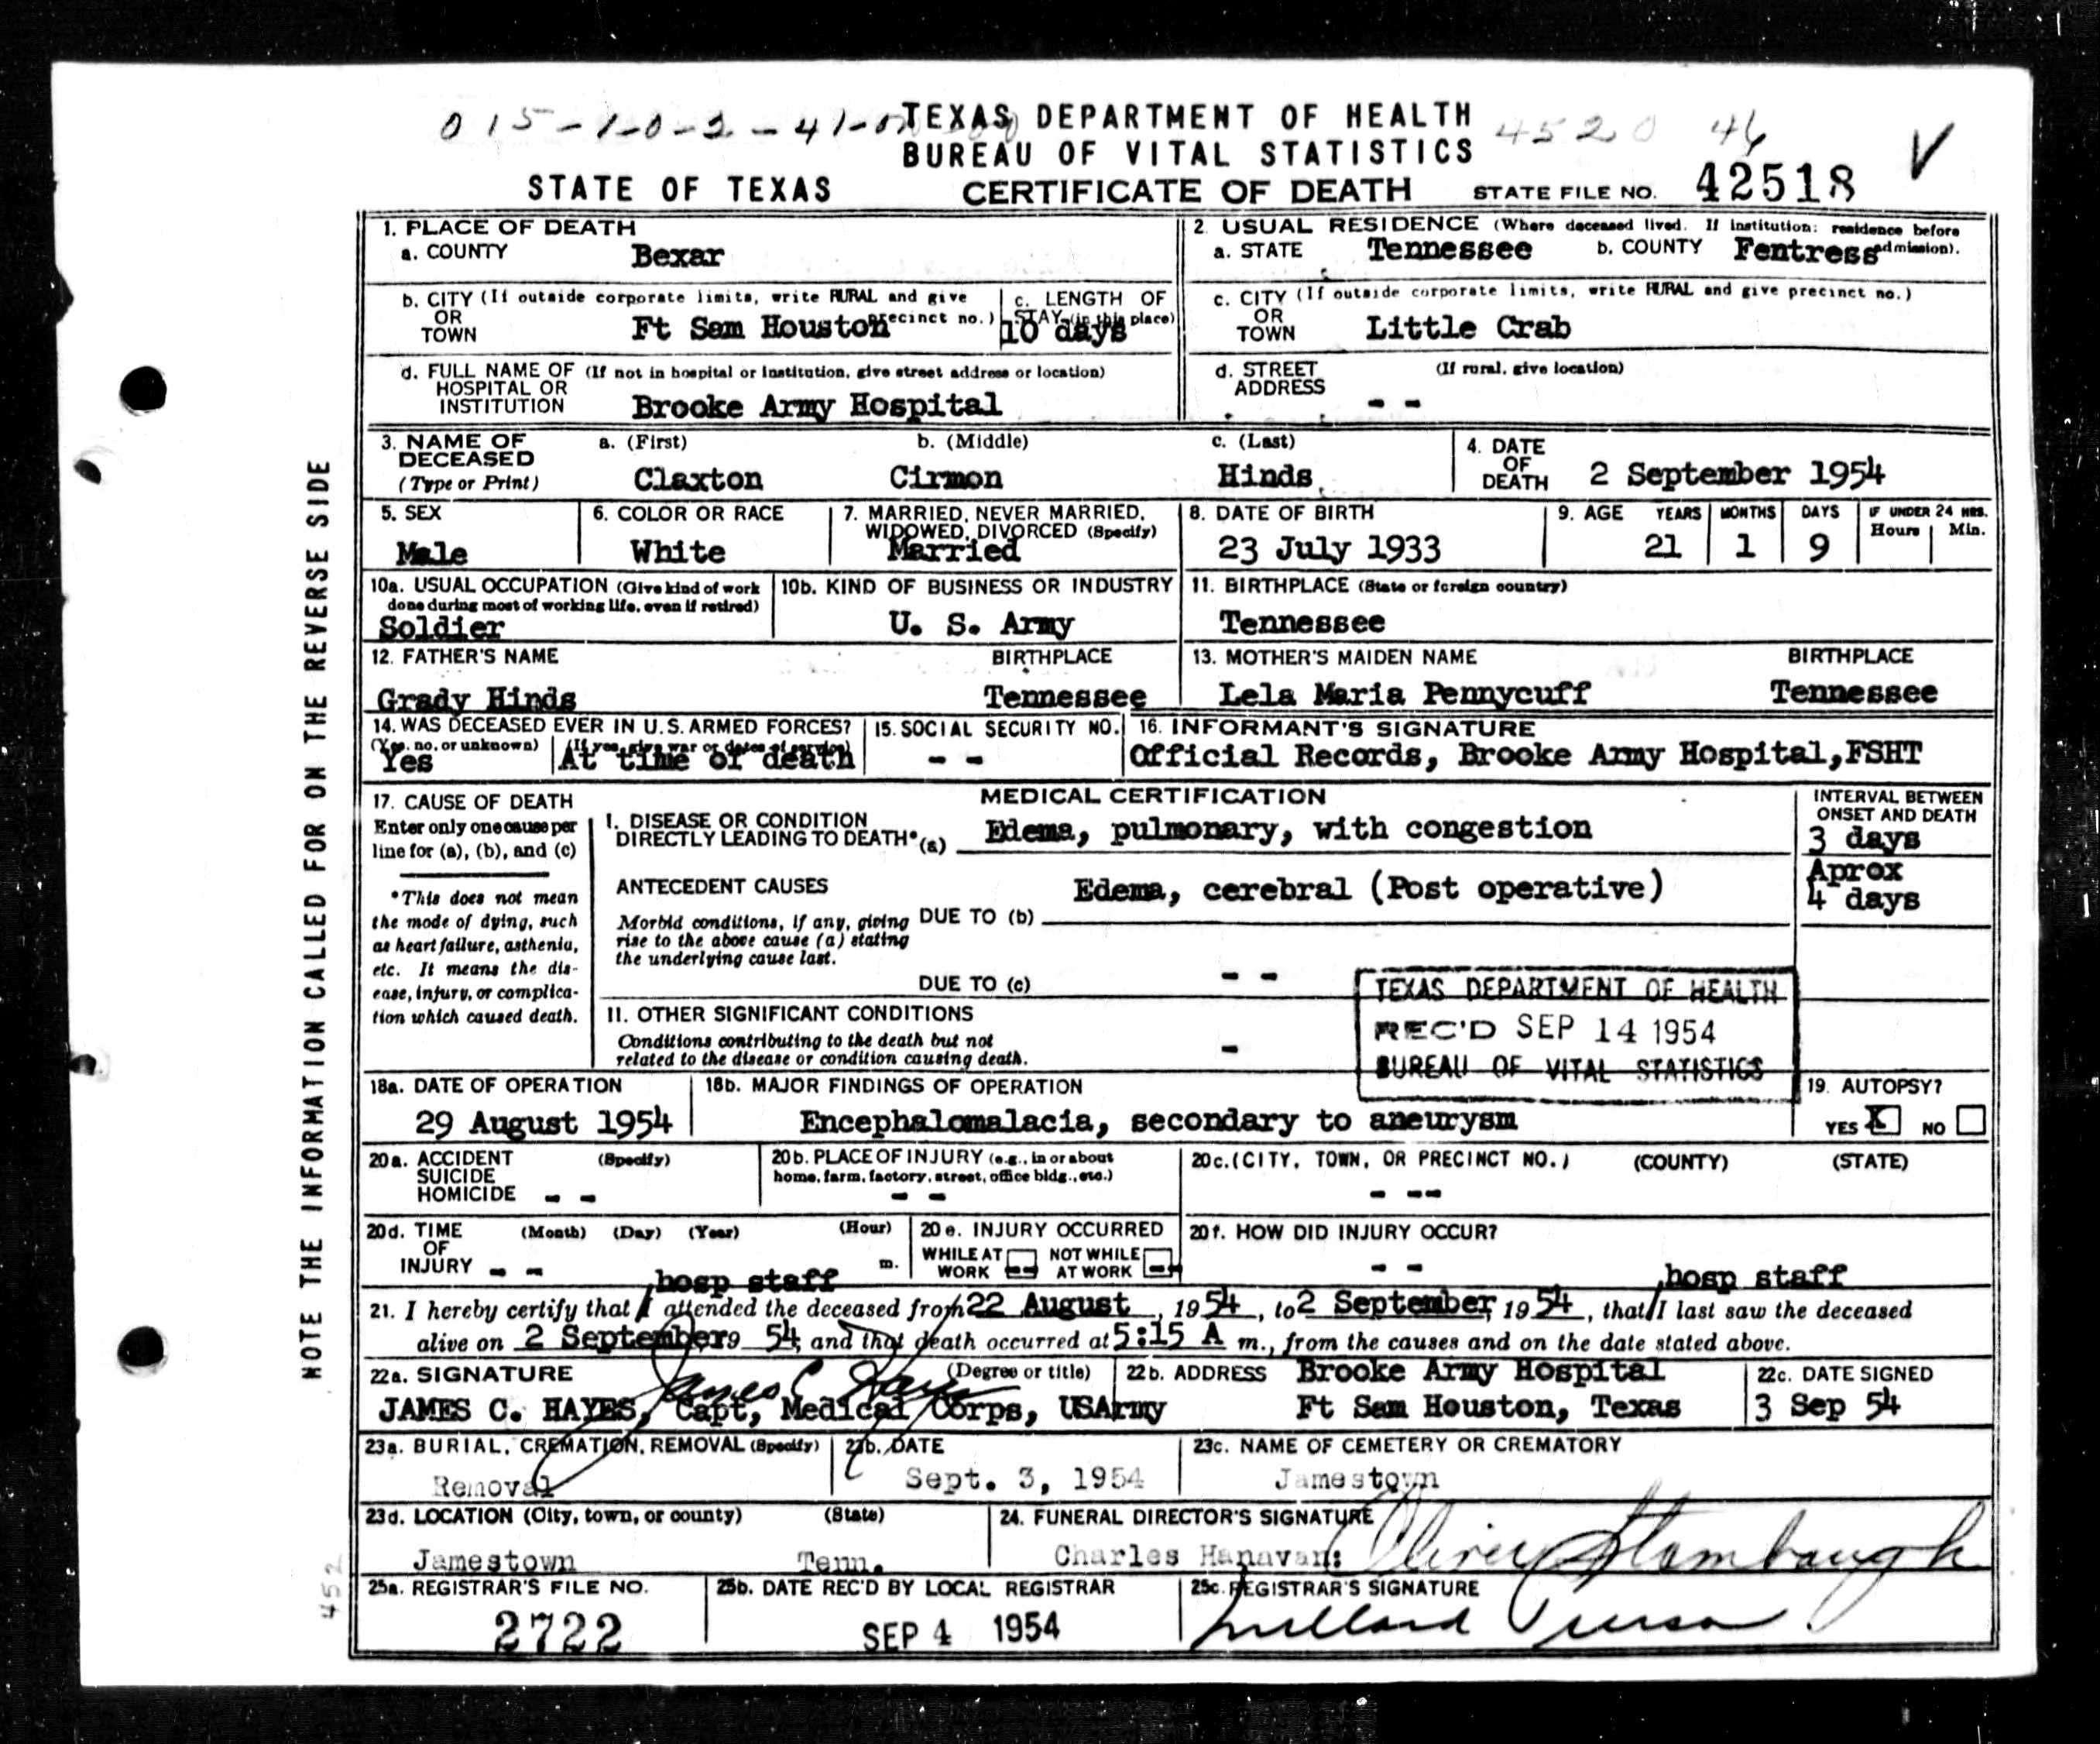 015-1-0-2-41-0
TEXAS DEPARTMENT OF HEALTH
4520 46 V
BUREAU OF VITAL STATISTICS
STATE OF TEXAS CERTIFICATE OF DEATH STATE FILE NO. 42518
1. PLACE OF DEATH
a. COUNTY Bexar
2. USUAL RESIDENCE (Where deceased lived. If institution: residence before admission).
a. STATE Tennessee b. COUNTY Fentress
b. CITY (If outside corporate limits, write RURAL and give precinct no.)
OR
TOWN Ft Sam Houston
c. LENGTH OF
STAY (in this place)
10 days
c. CITY (If outside corporate limits, write RURAL and give precinct no.)
OR
TOWN Little Crab
d. FULL NAME OF (If not in hospital or institution, give street address or location)
HOSPITAL OR
INSTITUTION Brooke Army Hospital
d. STREET (If rural, give location)
ADDRESS - -
3. NAME OF
DECEASED
(Type or Print)
a. (First) b. (Middle) c. (Last)
Claxton Cirmon Hinds
4. DATE
OF
DEATH 2 September 1954
5. SEX
Male
6. COLOR OR RACE
White
7. MARRIED, NEVER MARRIED,
WIDOWED, DIVORCED (Specify)
Married
8. DATE OF BIRTH
23 July 1933
9. AGE YEARS MONTHS DAYS IF UNDER 24 HRS.
Hours Min.
21 1 9
10a. USUAL OCCUPATION (Give kind of work
done during most of working life, even if retired)
Soldier
10b. KIND OF BUSINESS OR INDUSTRY
U. S. Army
11. BIRTHPLACE (State or foreign country)
Tennessee
12. FATHER'S NAME BIRTHPLACE
Grady Hinds Tennessee
13. MOTHER'S MAIDEN NAME BIRTHPLACE
Lela Maria Pennycuff Tennessee
14. WAS DECEASED EVER IN U.S. ARMED FORCES?
(Yes, no, or unknown) (If yes, give war or dates of service)
Yes At time of death
15. SOCIAL SECURITY NO.
- -
16. INFORMANT'S SIGNATURE
Official Records, Brooke Army Hospital,FSHT
17. CAUSE OF DEATH
Enter only one cause per
line for (a), (b), and (c)
*This does not mean
the mode of dying, such
as heart failure, asthenia,
etc. It means the dis-
ease, injury, or complica-
tion which caused death.
MEDICAL CERTIFICATION
I. DISEASE OR CONDITION
DIRECTLY LEADING TO DEATH* (a) Edema, pulmonary, with congestion
ANTECEDENT CAUSES
Morbid conditions, if any, giving
rise to the above cause (a) stating
the underlying cause last.
Edema, cerebral (Post operative)
DUE TO (b)
DUE TO (c) - -
II. OTHER SIGNIFICANT CONDITIONS
Conditions contributing to the death but not
related to the disease or condition causing death. -
INTERVAL BETWEEN
ONSET AND DEATH
3 days
Aprox
4 days
TEXAS DEPARTMENT OF HEALTH
REC'D SEP 14 1954
BUREAU OF VITAL STATISTICS
18a. DATE OF OPERATION
29 August 1954
18b. MAJOR FINDINGS OF OPERATION
Encephalomalacia, secondary to aneurysm
19. AUTOPSY?
YES X NO
20a. ACCIDENT (Specify)
SUICIDE
HOMICIDE - -
20b. PLACE OF INJURY (e.g., in or about
home, farm, factory, street, office bldg., etc.)
- -
20c. (CITY, TOWN, OR PRECINCT NO.) (COUNTY) (STATE)
- --
20d. TIME (Month) (Day) (Year) (Hour)
OF
INJURY - - m.
20e. INJURY OCCURRED
WHILE AT NOT WHILE
WORK -- AT WORK --
20f. HOW DID INJURY OCCUR?
- -
hosp staff hosp staff
21. I hereby certify that I attended the deceased from 22 August, 1954, to 2 September, 1954, that I last saw the deceased
alive on 2 September 19 54, and that death occurred at 5:15 A m., from the causes and on the date stated above.
22a. SIGNATURE (Degree or title)
James C Hayes
JAMES C. HAYES, Capt, Medical Corps, USArmy
22b. ADDRESS Brooke Army Hospital
Ft Sam Houston, Texas
22c. DATE SIGNED
3 Sep 54
23a. BURIAL, CREMATION, REMOVAL (Specify)
Removal
23b. DATE
Sept. 3, 1954
23c. NAME OF CEMETERY OR CREMATORY
Jamestown
23d. LOCATION (City, town, or county) (State)
Jamestown Tenn.
24. FUNERAL DIRECTOR'S SIGNATURE
Charles Hanavan: Oliver Stambaugh
25a. REGISTRAR'S FILE NO.
2722
25b. DATE REC'D BY LOCAL REGISTRAR
SEP 4 1954
25c. REGISTRAR'S SIGNATURE
NOTE THE INFORMATION CALLED FOR ON THE REVERSE SIDE
452